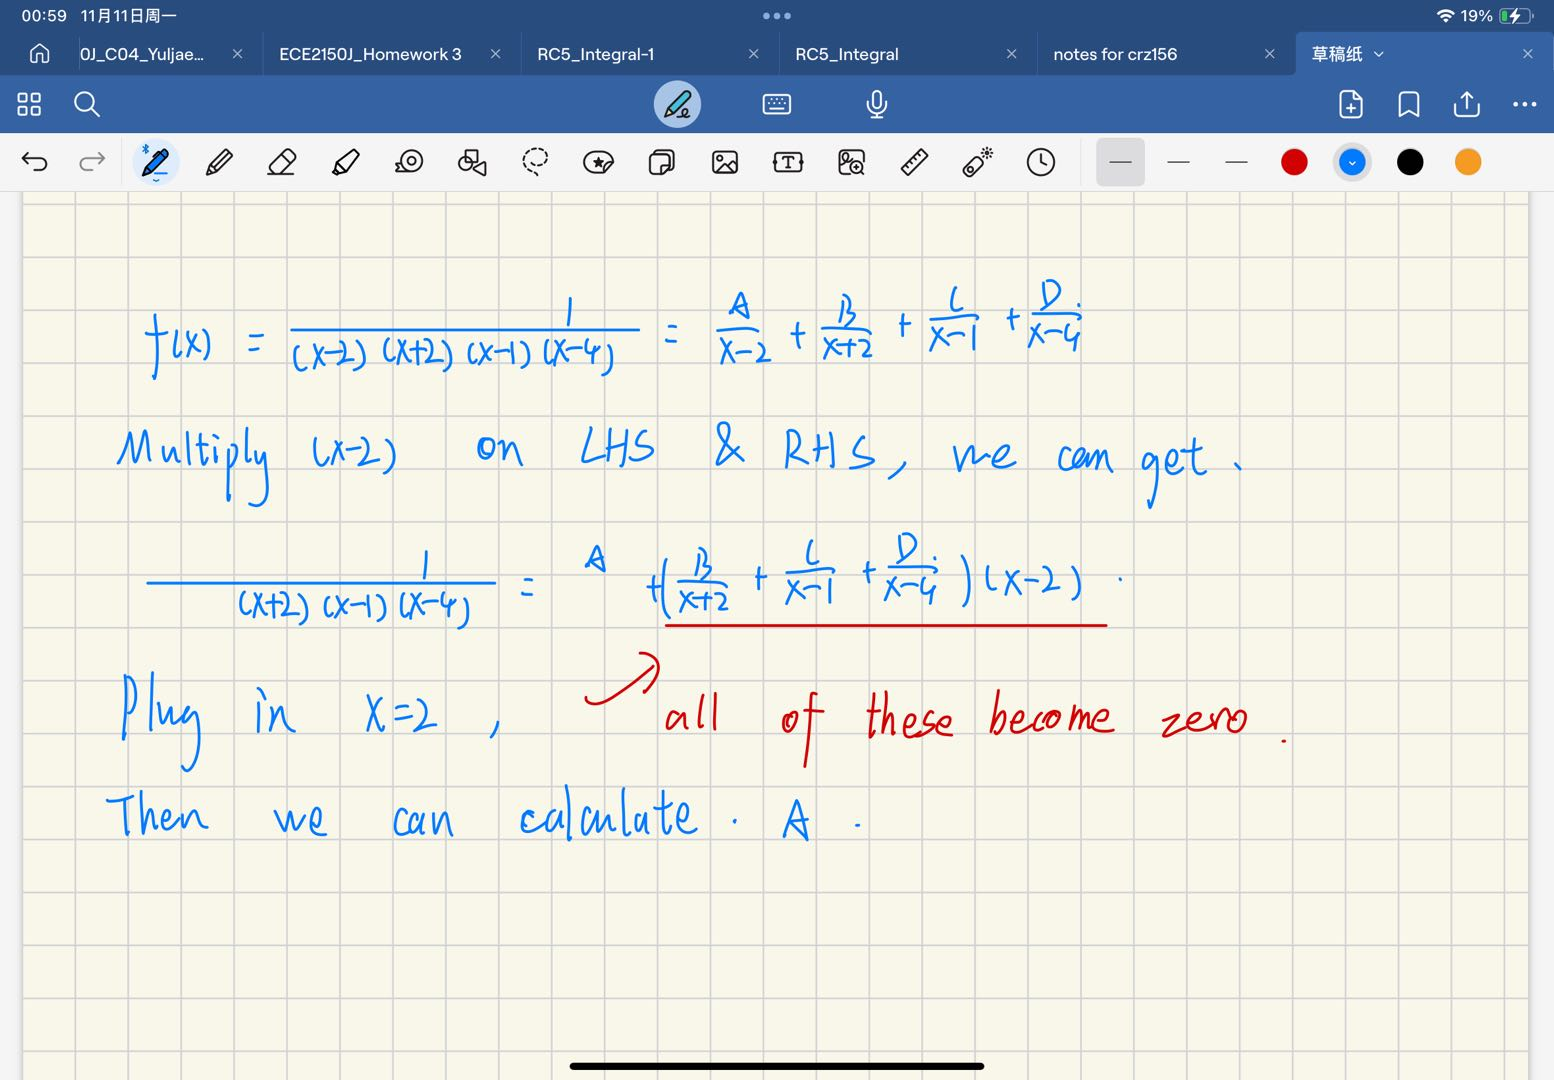 00:59 11月11日周一 19%
0J_C04_Yuljae... ECE2150J_Homework 3 RC5_Integral-1 RC5_Integral notes for crz156 草稿纸
f(x) = 1/((x-2)(x+2)(x-1)(x-4)) = A/(x-2) + B/(x+2) + C/(x-1) + D/(x-4)
Multiply (x-2) on LHS & RHS, we can get.
1/((x+2)(x-1)(x-4)) = A + (B/(x+2) + C/(x-1) + D/(x-4))(x-2).
Plug in x=2, all of these become zero.
Then we can calculate. A.